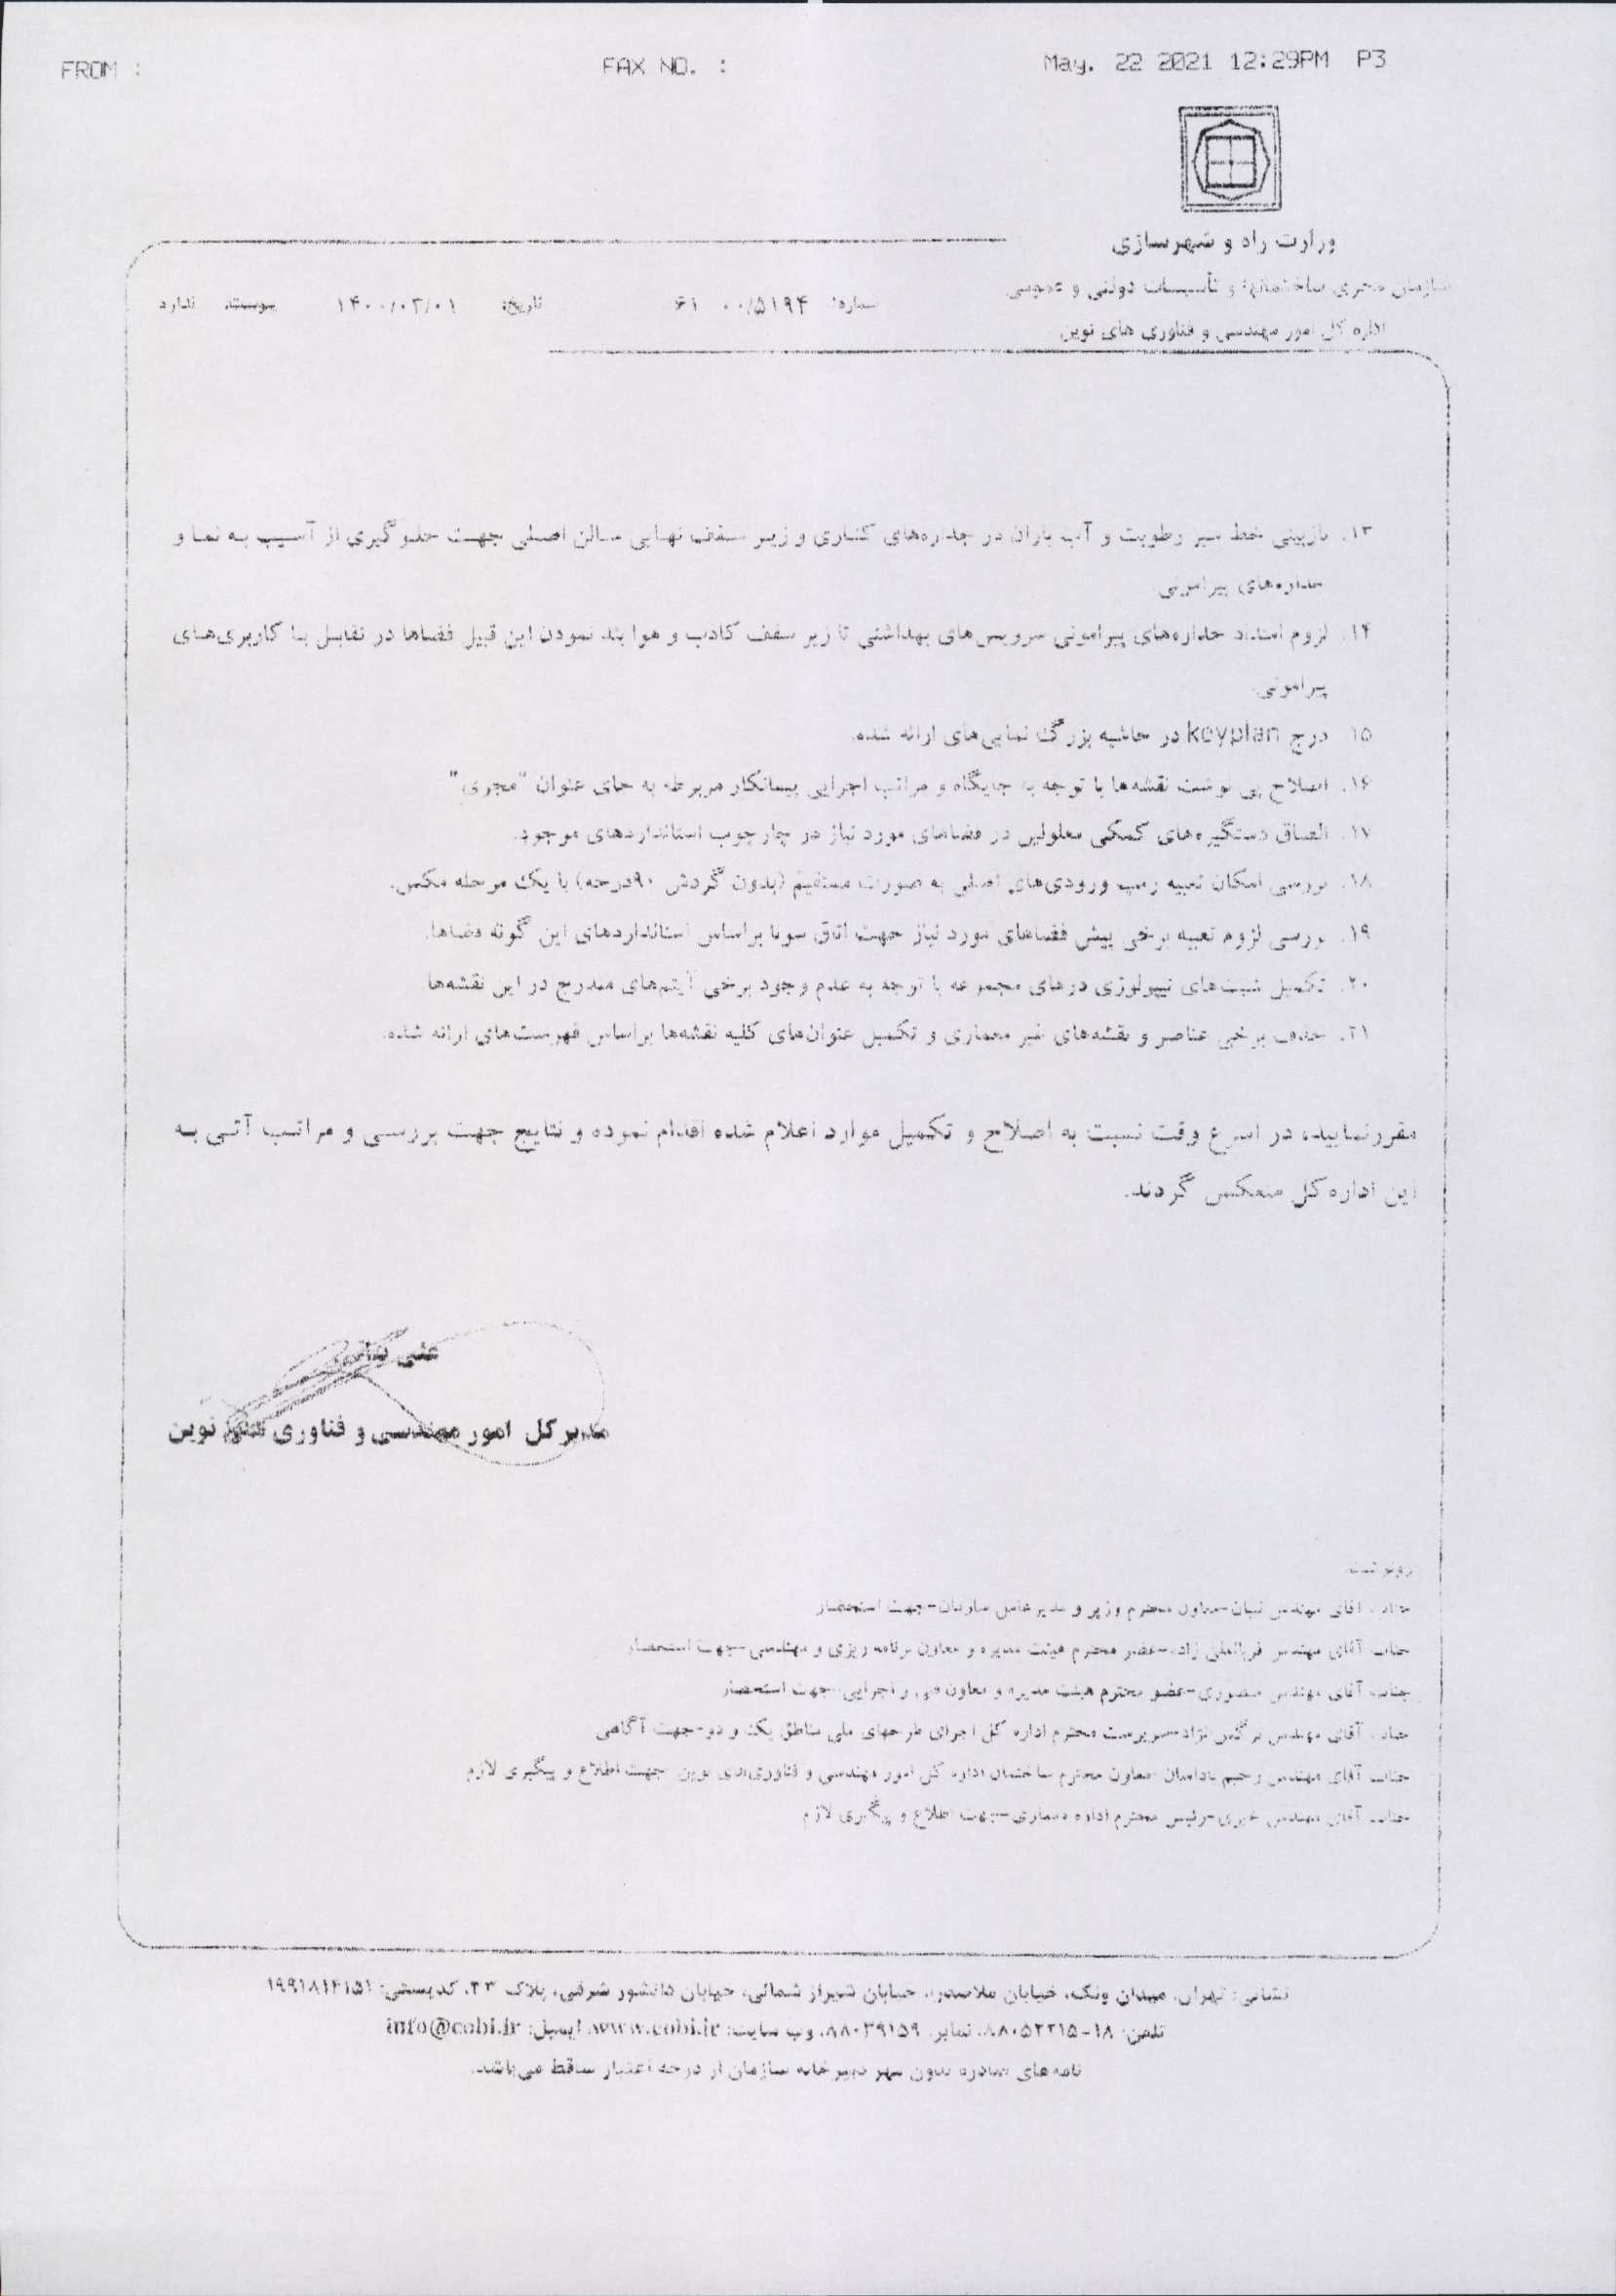 FROM :
FAX NO. :
May. 22 2021 12:29PM P3
وزارت راه و شهرسازی
سازمان مجری ساختمانها و تأسیسات دولتی و عمومی
اداره کل امور مهندسی و فناوری های نوین
شماره: ۰۰/۵۱۹۴ ۶۱
تاریخ: ۱۴۰۰/۰۳/۰۱
پیوست: ندارد
۱۳. بازبینی خط سیر رطوبت و آب باران در جداره‌های کناری و زیر سقف نهایی سالن اصلی جهت جلوگیری از آسیب به نما و
جداره‌های پیرامونی.
۱۴. لزوم امتداد جداره‌های پیرامونی سرویس‌های بهداشتی تا زیر سقف کاذب و هوا بند نمودن این قبیل فضاها در تقابل با کاربری‌های
پیرامونی.
۱۵. درج keyplan در حاشیه بزرگ نمایی‌های ارائه شده.
۱۶. اصلاح پی نوشت نقشه‌ها با توجه به جایگاه و مراتب اجرایی پیمانکار مربوطه به جای عنوان "مجری"
۱۷. الصاق دستگیره‌های کمکی معلولین در فضاهای مورد نیاز در چارچوب استانداردهای موجود.
۱۸. بررسی امکان تعبیه رمپ ورودی‌های اصلی به صورت مستقیم (بدون گردش ۹۰درجه) با یک مرحله مکس.
۱۹. بررسی لزوم تعبیه برخی پیش فضاهای مورد نیاز جهت اتاق سونا براساس استانداردهای این گونه فضاها.
۲۰. تکمیل شیت‌های تیپولوژی درهای مجموعه با توجه به عدم وجود برخی آیتم‌های مندرج در این نقشه‌ها.
۲۱. حذف برخی عناصر و نقشه‌های غیر معماری و تکمیل عنوان‌های کلیه نقشه‌ها براساس فهرست‌های ارائه شده.
مقررنمایید، در اسرع وقت نسبت به اصلاح و تکمیل موارد اعلام شده اقدام نموده و نتایج جهت بررسی و مراتب آتی به
این اداره کل منعکس گردند.
مدیر کل امور مهندسی و فناوری های نوین
رونوشت:
جناب آقای مهندس معاون محترم وزیر و مدیر عامل سازمان-جهت استحضار
جناب آقای مهندس قربانعلی زاده-عضو محترم هیئت مدیره و معاون برنامه ریزی و مهندسی-جهت استحضار
جناب آقای مهندس منصوری-عضو محترم هیئت مدیره و معاون فنی و اجرایی-جهت استحضار
جناب آقای مهندس نرگس نژاد-سرپرست محترم اداره کل اجرای طرحهای ملی مناطق یک و دو-جهت آگاهی
جناب آقای مهندس رحیم معاون محترم ساختمان اداره کل امور مهندسی و فناوری‌های نوین-جهت اطلاع و پیگیری لازم
جناب آقای مهندس خیری-رئیس محترم اداره معماری-جهت اطلاع و پیگیری لازم
نشانی: تهران، میدان ونک، خیابان ملاصدرا، خیابان شیراز شمالی، خیابان دانشور شرقی، پلاک ۲۳، کدپستی: ۱۹۹۱۸۱۴۱۵۱
تلفن: ۱۸-۸۸۰۵۲۲۱۵، نمابر: ۸۸۰۳۹۱۵۹، وب سایت: www.cobi.ir، ایمیل: info@cobi.ir
نامه های صادره بدون مهر دبیرخانه سازمان از درجه اعتبار ساقط می‌باشد.